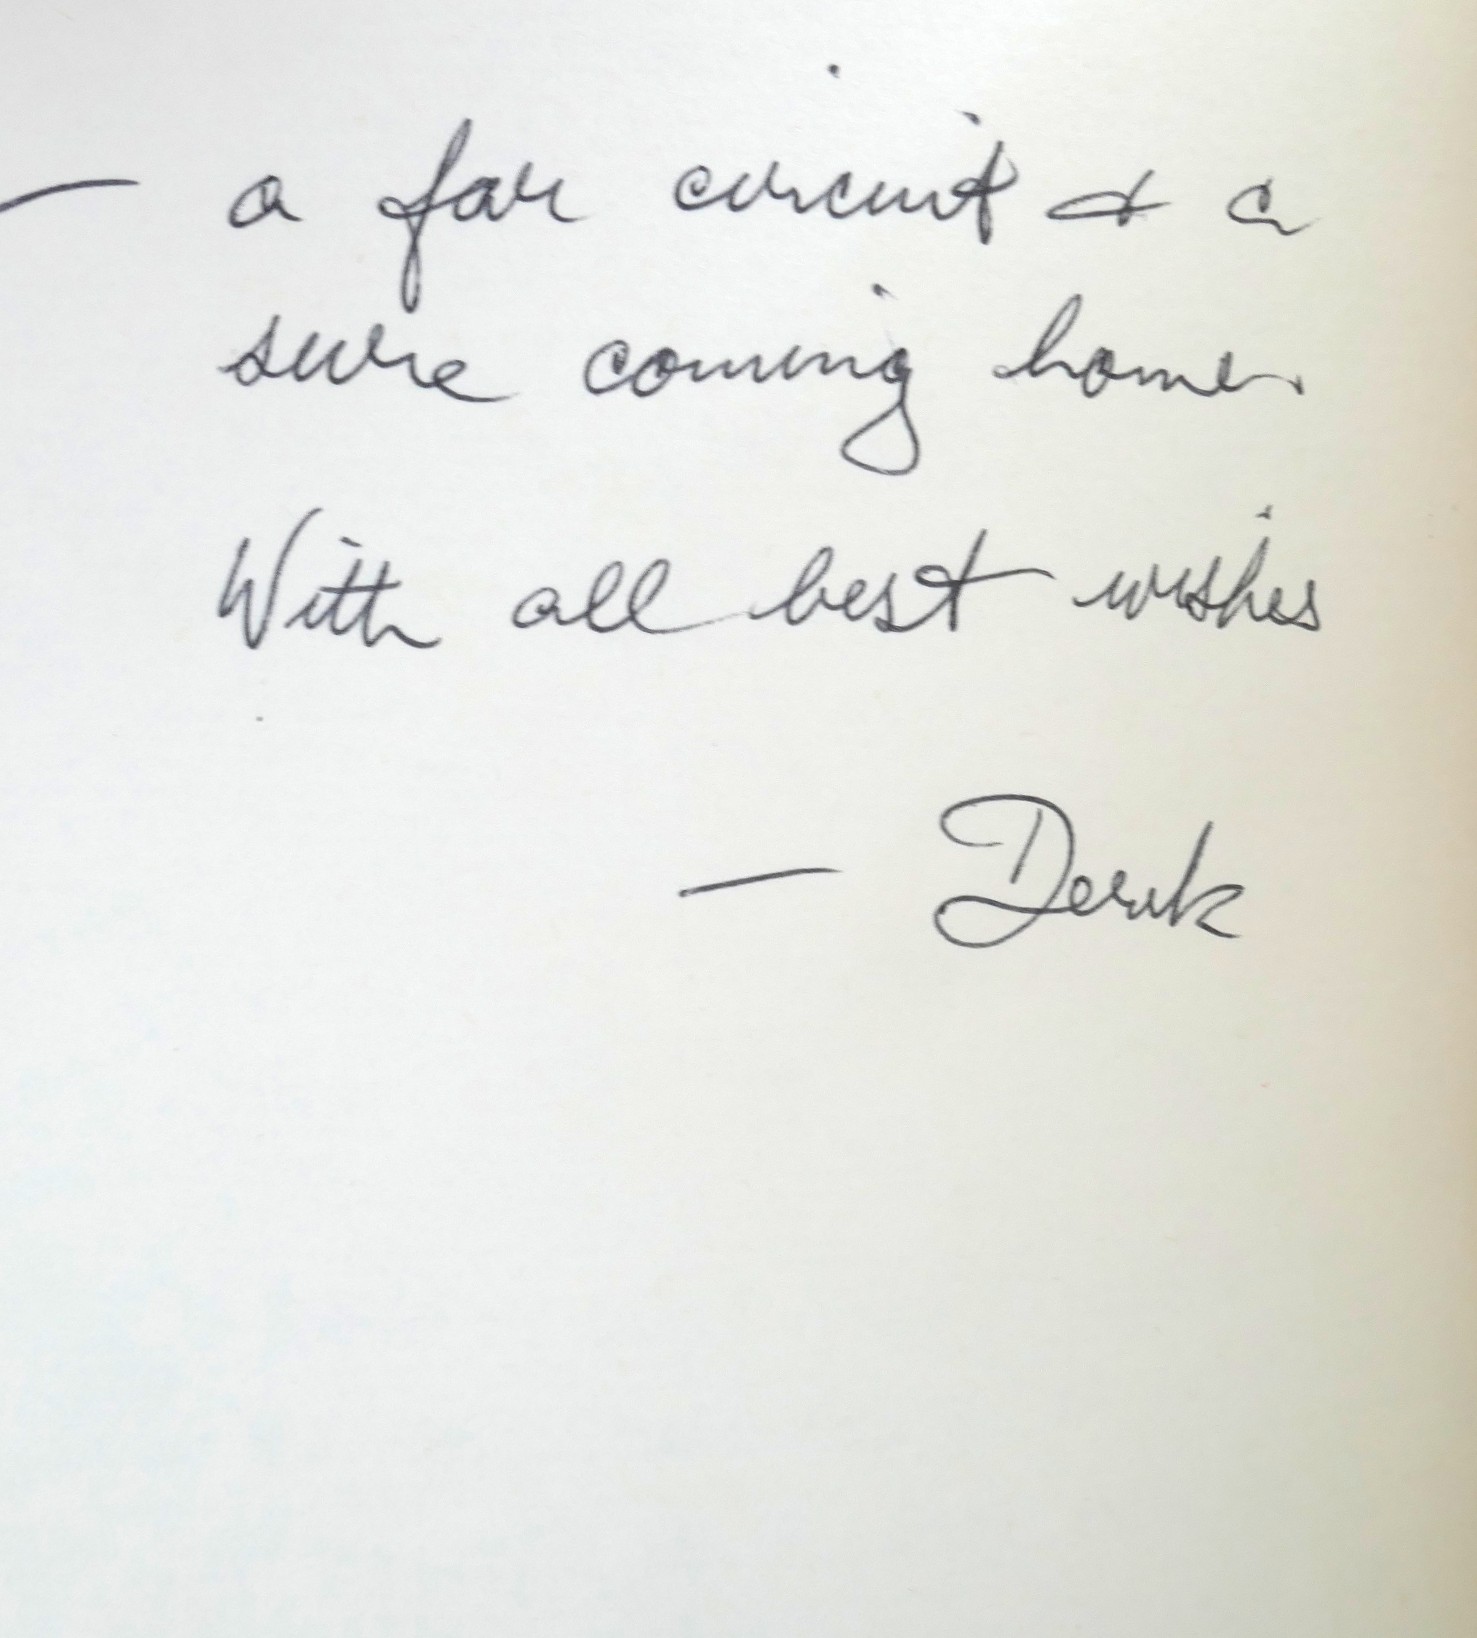 — a far circuit & a
sure coming home.
With all best wishes
— Derek